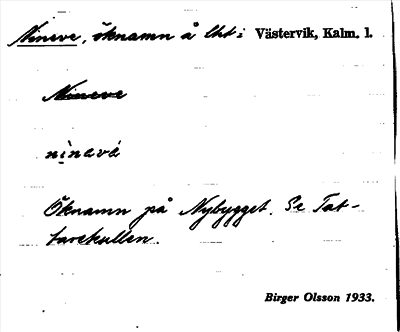 Nineve, öknamn å lht i Västervik, Kalm. l.
Nineve
ninavé
Öknamn på Nybygget. Se Tat-
tarekullen.
Birger Olsson 1933.